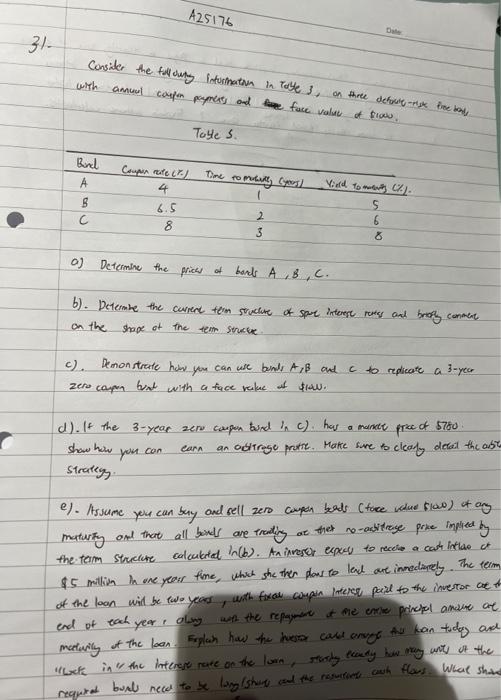 A25176
Date
31.
Consider the following information in Table 3, on three default-risk free bonds
with annual coupon payments and face value of $1000.
Table 3.
Bond Coupon rate (%) Time to maturity (years) Yield to maturity (%).
A 4 1 5
B 6.5 2 6
C 8 3 8
a) Determine the prices of bonds A, B, C.
b). Determine the current term structure of spot interest rates and briefly comment
on the shape of the term structure.
c). Demonstrate how you can use bonds A, B and C to replicate a 3-year
zero coupon bond with a face value of $1000.
d). If the 3-year zero coupon bond in c). has a market price of $780.
show how you can earn an arbitrage profit. Make sure to clearly detail the
strategy.
e). Assume you can buy and sell zero coupon bonds (face value $1000) of any
maturity and that all bonds are trading at their no-arbitrage price implied by
the term structure calculated in (b). An investor expects to receive a cash inflow of
$5 million in one years time, which she then plans to lend out immediately. The term
of the loan will be two years, with fixed coupon interest paid to the investor at the
end of each year, along with the repayment of the entire principal amount at
maturity of the loan. Explain how the investor could arrange this loan today and
"lock in" the interest rate on the loan, stating exactly how many units of the
required bonds need to be long/short and the resultant cash flows. What